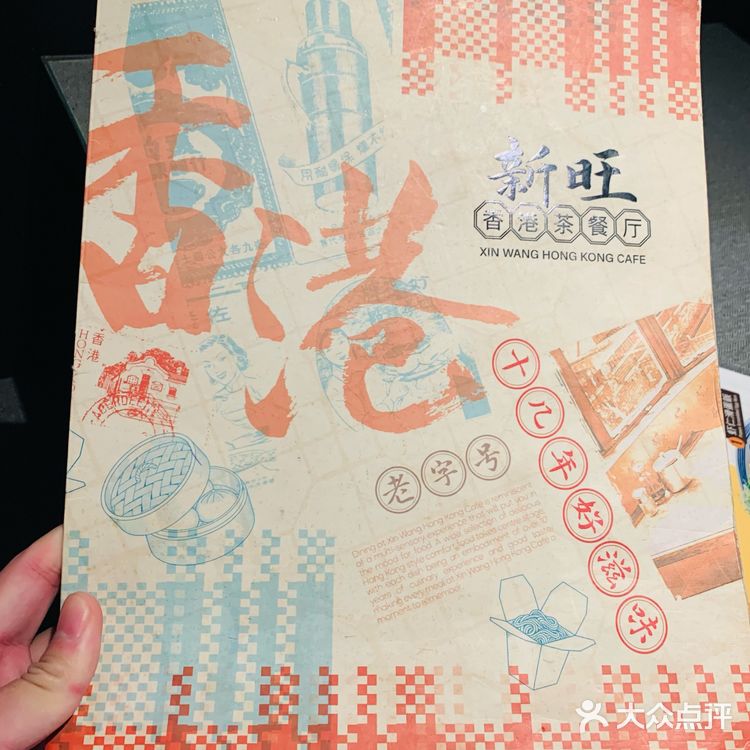 香港
新旺
香港茶餐厅
XIN WANG HONG KONG CAFE
香港
HONG
十几年好滋味
老字号
Dining at Xin Wang Hong Kong Cafe is reminiscent
of a multi-sensory experience that will put you in
the mood for food. A wide selection of delicious
Hong Kong style comfort food takes centre stage,
with each dish being an embodiment of over 10
years of culinary experience and good taste,
making every meal at Xin Wang Hong Kong Cafe a
moment to remember.
大众点评